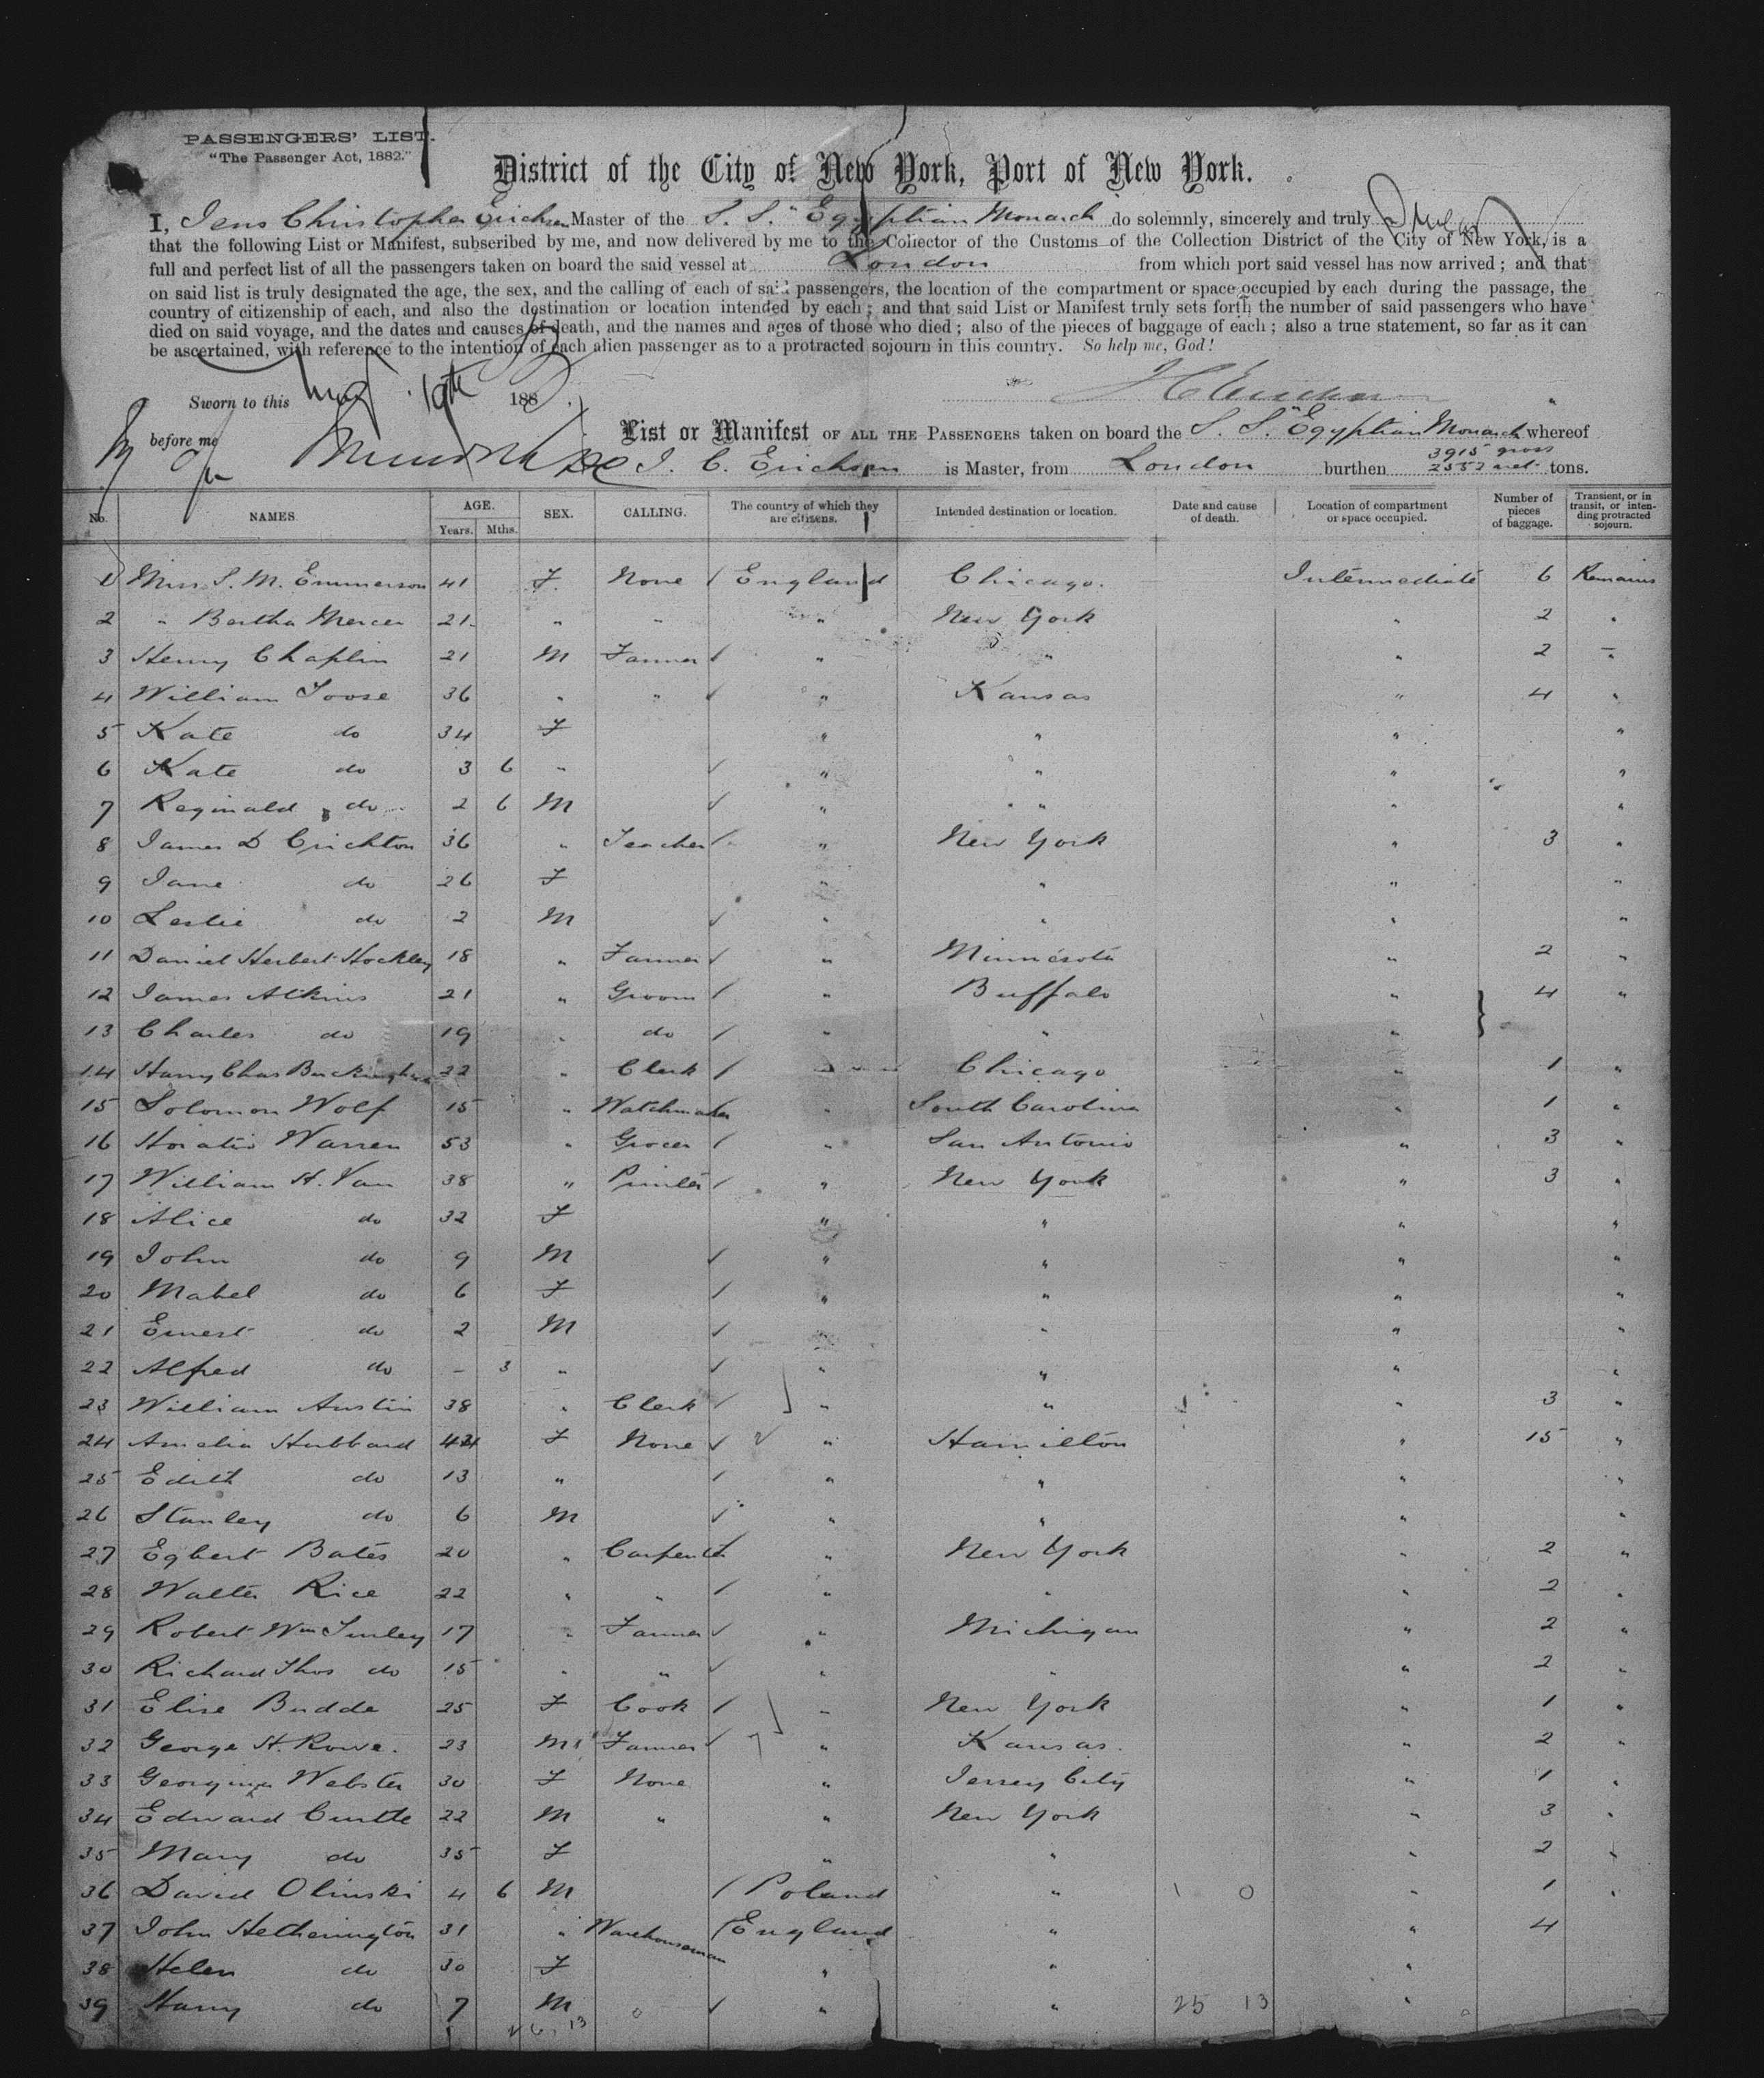 PASSENGERS' LIST.
"The Passenger Act, 1882."
District of the City of New York, Port of New York.
I, Jens Christopher Erichsen Master of the S. S. "Egyptian Monarch do solemnly, sincerely and truly swear
that the following List or Manifest, subscribed by me, and now delivered by me to the Collector of the Customs of the Collection District of the City of New York, is a
full and perfect list of all the passengers taken on board the said vessel at London from which port said vessel has now arrived; and that
on said list is truly designated the age, the sex, and the calling of each of said passengers, the location of the compartment or space occupied by each during the passage, the
country of citizenship of each, and also the destination or location intended by each; and that said List or Manifest truly sets forth the number of said passengers who have
died on said voyage, and the dates and causes of death, and the names and ages of those who died; also of the pieces of baggage of each; also a true statement, so far as it can
be ascertained, with reference to the intention of each alien passenger as to a protracted sojourn in this country. So help me, God!
Sworn to this 19th 188 J C Erichsen
before me List or Manifest OF ALL THE PASSENGERS taken on board the S. S. "Egyptian Monarch whereof
J. C. Erichsen is Master, from London burthen 3915 gross 2552 net tons.
No. NAMES. AGE. Years. Mths. SEX. CALLING. The country of which they are citizens. Intended destination or location. Date and cause of death. Location of compartment or space occupied. Number of pieces of baggage. Transient, or in transit, or intending protracted sojourn.
1 Miss S. M. Emmerson 41 F. None England Chicago. Intermediate 6 Remains
2 " Bertha Mercer 21 " " " New York " 2 "
3 Henry Chaplin 21 M Farmer " " " 2 "
4 William Toose 36 " " " Kansas " 4 "
5 Kate do 34 F " " " "
6 Kate do 3 6 " " " " "
7 Reginald do 2 6 M " " " "
8 James D Crichton 36 " Teacher " New York " 3 "
9 Jane do 26 F " " " "
10 Leslie do 2 M " " " "
11 Daniel Herbert Hockley 18 " Farmer " Minnesota " 2 "
12 James Atkins 21 " Groom " Buffalo " 4 "
13 Charles do 19 " do " " "
14 Harry Chas Buckingham 22 " Clerk " Chicago " 1 "
15 Solomon Wolf 15 " Watchmaker " South Carolina " 1 "
16 Horatio Warren 53 " Grocer " San Antonio " 3 "
17 William H. Van 38 " Printer " New York " 3 "
18 Alice do 32 F " " " "
19 John do 9 M " " " "
20 Mabel do 6 F " " " "
21 Ernest do 2 M " " " "
22 Alfred do - 3 " " " " "
23 William Austin 38 " Clerk " " " 3 "
24 Amelia Hubbard 44 F None " Hamilton " 15 "
25 Edith do 13 " " " " "
26 Stanley do 6 M " " " "
27 Egbert Bates 20 " Carpenter " New York " 2 "
28 Walter Rice 22 " " " " " 2 "
29 Robert Wm Turley 17 " Farmer " Michigan " 2 "
30 Richard Thos do 15 " " " " " 2 "
31 Elise Budde 25 F Cook " New York " 1 "
32 George H. Rowe. 23 M Farmer " Kansas. " 2 "
33 Georgina Webster 30 F None " Jersey City " 1 "
34 Edward Curtle 22 M " " New York " 3 "
35 Mary do 35 F " " " 2 "
36 David Olinski 4 6 M Poland " " 1 "
37 John Hetherington 31 " Warehouseman England " " 4
38 Helen do 30 F " " "
39 Harry do 7 M " " 25 13 "